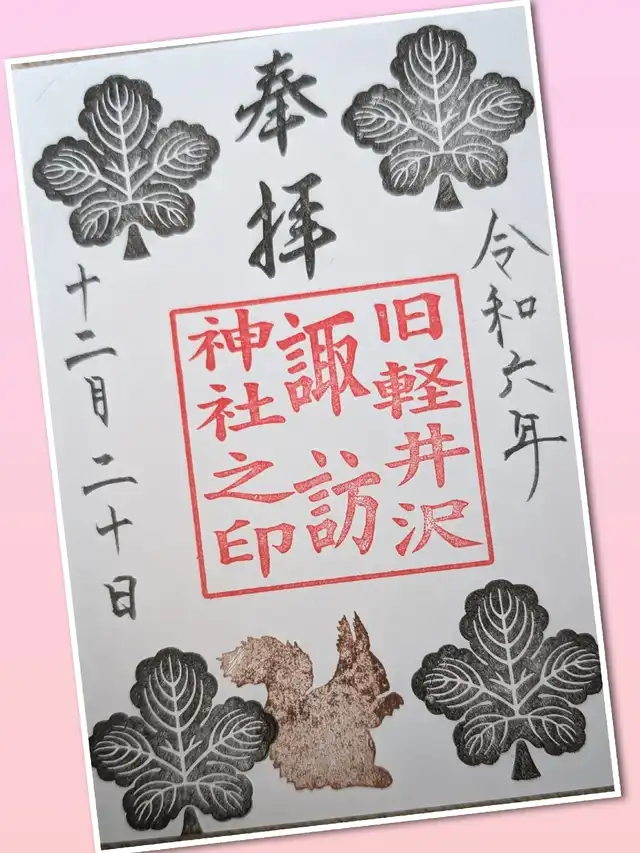 奉拝
令和六年
旧軽井沢
諏訪
神社之印
十二月二十日